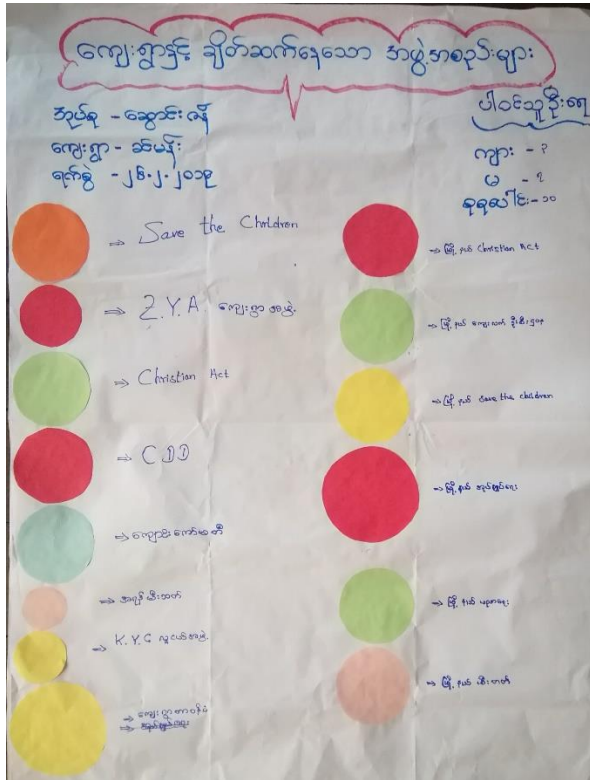 ကျေးရွာနှင့် ချိတ်ဆက်နေသော အဖွဲ့အစည်းများ
အုပ်စု -
ကျေးရွာ -
ရက်စွဲ - ၂၆.၂.၂၀၁၉
ပါဝင်သူဦးရေ
ကျား - ၃
မ - ၇
စုစုပေါင်း - ၁၀
⇒ Save the Children
⇒ Z.Y.A ကျေးရွာ အဖွဲ့
⇒ Christian Act
⇒ CDD
⇒ ကျောင်းကော်မတီ
⇒ အရန်မီးသတ်
⇒ K.Y.C လူငယ်အဖွဲ့
⇒ ကျေးရွာတာဝန်ခံ
⇒ မြို့နယ် Christian Act
⇒ မြို့နယ် ကျေးလက် ဦးစီးဌာန
⇒ မြို့နယ် Save the children
⇒ မြို့နယ် အုပ်ချုပ်ရေး
⇒ မြို့နယ် ပညာရေး
⇒ မြို့နယ် မီးသတ်